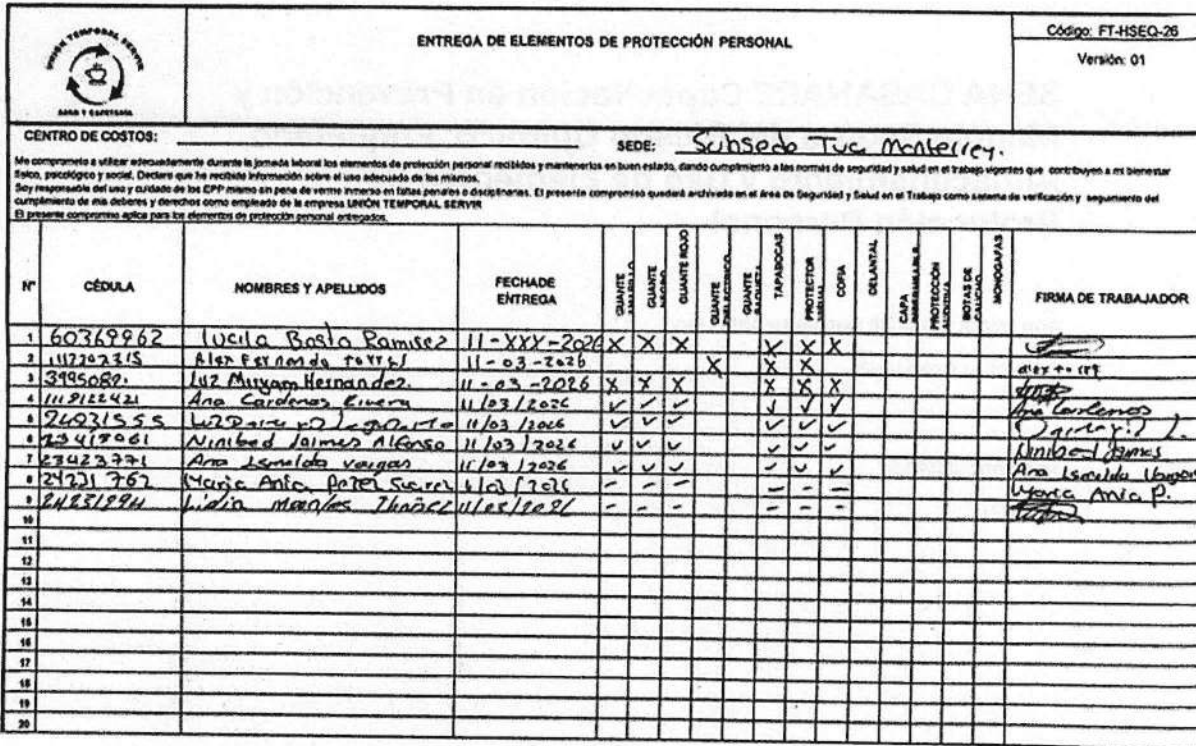 UNIÓN TEMPORAL SERVIR
ASEO Y CAFETERIA
ENTREGA DE ELEMENTOS DE PROTECCIÓN PERSONAL
Código: FT-HSEQ-26
Versión: 01
CENTRO DE COSTOS: SEDE: Subsede Tuc Monterrey.
Me comprometo a utilizar adecuadamente durante la jornada laboral los elementos de protección personal recibidos y mantenerlos en buen estado, dando cumplimiento a las normas de seguridad y salud en el trabajo vigentes que contribuyen a mi bienestar
físico, psicológico y social. Declaro que he recibido información sobre el uso adecuado de los mismos.
Soy responsable del uso y cuidado de los EPP mismo sin pena de verme inmerso en faltas penales o disciplinarias. El presente compromiso quedará archivado en el área de Seguridad y Salud en el Trabajo como sistema de verificación y seguimiento del
cumplimiento de mis deberes y derechos como empleado de la empresa UNIÓN TEMPORAL SERVIR
El presente compromiso aplica para los elementos de protección personal entregados.
N° CÉDULA NOMBRES Y APELLIDOS FECHADE ENTREGA GUANTE GUANTE GUANTE ROJO GUANTE GUANTE TAPABOCAS PROTECTOR COFIA DELANTAL CAPA PROTECCIÓN BOTAS DE MONOGAFAS FIRMA DE TRABAJADOR
1 60369962 Lucila Basto Ramirez 11-XXX-2026 X X X X X X
2 Alex Fernando 11-03-2026 X X X
3 Luz Miryam Hernandez. 11-03-2026 X X X X X X
4 1118122421 Ana Cardenas Rivera 11/03/2026 ✓ ✓ ✓ ✓ ✓ ✓ Ana Cardenas
5 24031555 11/03/2026 ✓ ✓ ✓ ✓ ✓ ✓
6 Ninibed Jaimes Alfonso 11/03/2026 ✓ ✓ ✓ ✓ ✓ ✓ Ninibed Jaimes
7 23423771 Ana Ismelda Vargas 11/03/2026 ✓ ✓ ✓ ✓ ✓ ✓ Ana Ismelda Vargas
8 24231762 Maria Ania 11/03/2026 - - - - - - Maria Ania P.
9 Lidia 11/03/2026 - - - - - -
10
11
12
13
14
15
16
17
18
19
20